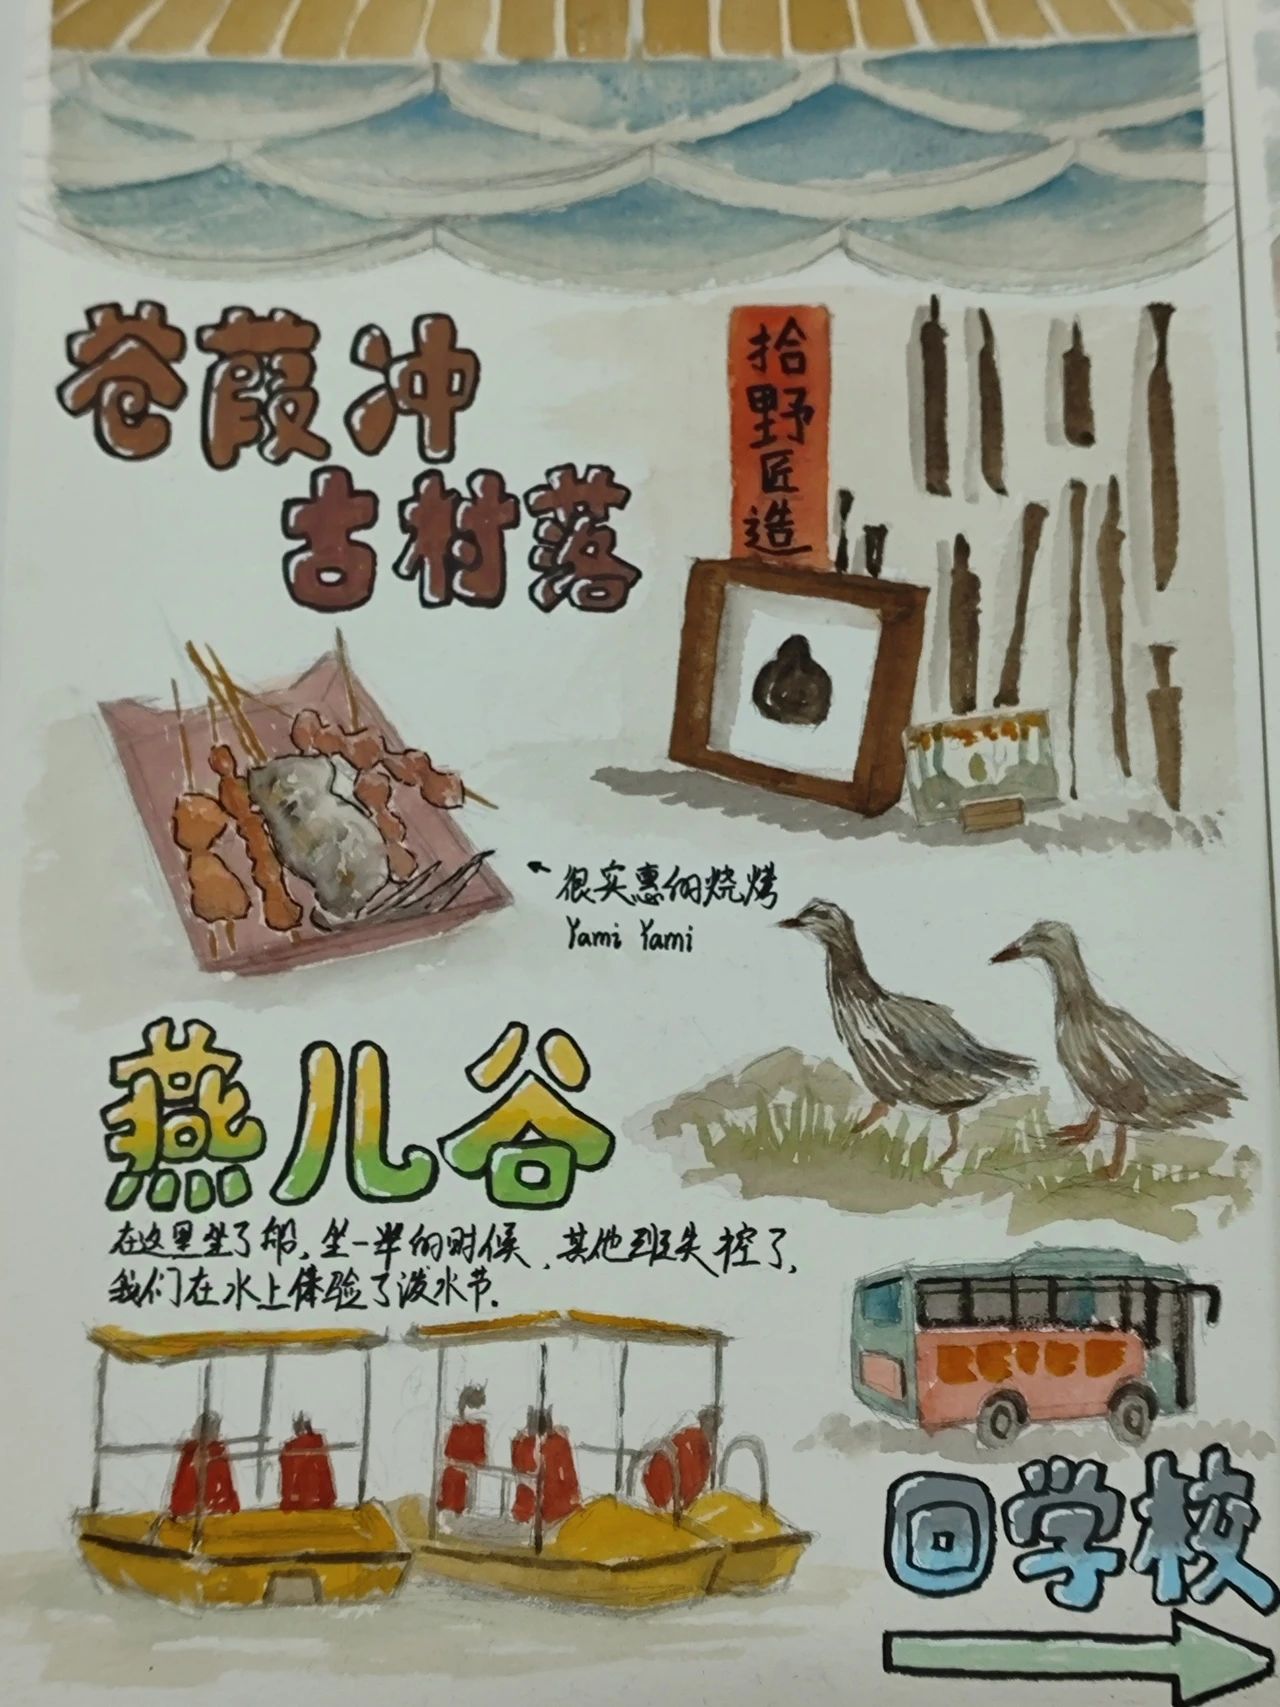 苍葭冲
古村落
拾野匠造
很实惠的烧烤
Yami Yami
燕儿谷
在这里坐了船,坐一半的时候,其他班失控了,
我们在水上体验了泼水节.
回学校